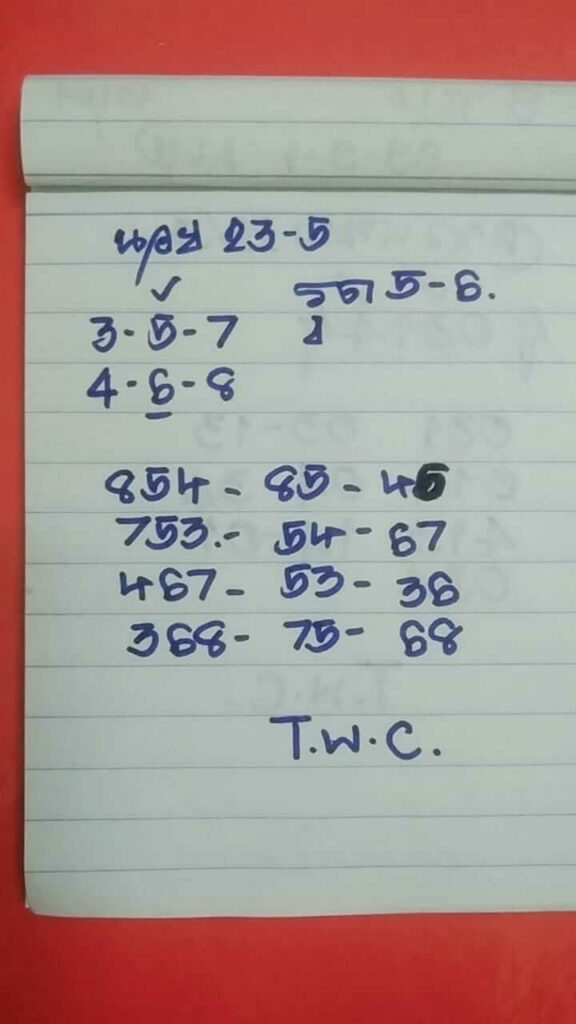 นอย 23-5
รูด 5-6.
3-5-7
4-6-8
854 - 85 - 46
753.- 54 - 67
467- 53- 36
368- 75- 68
T.W.C.